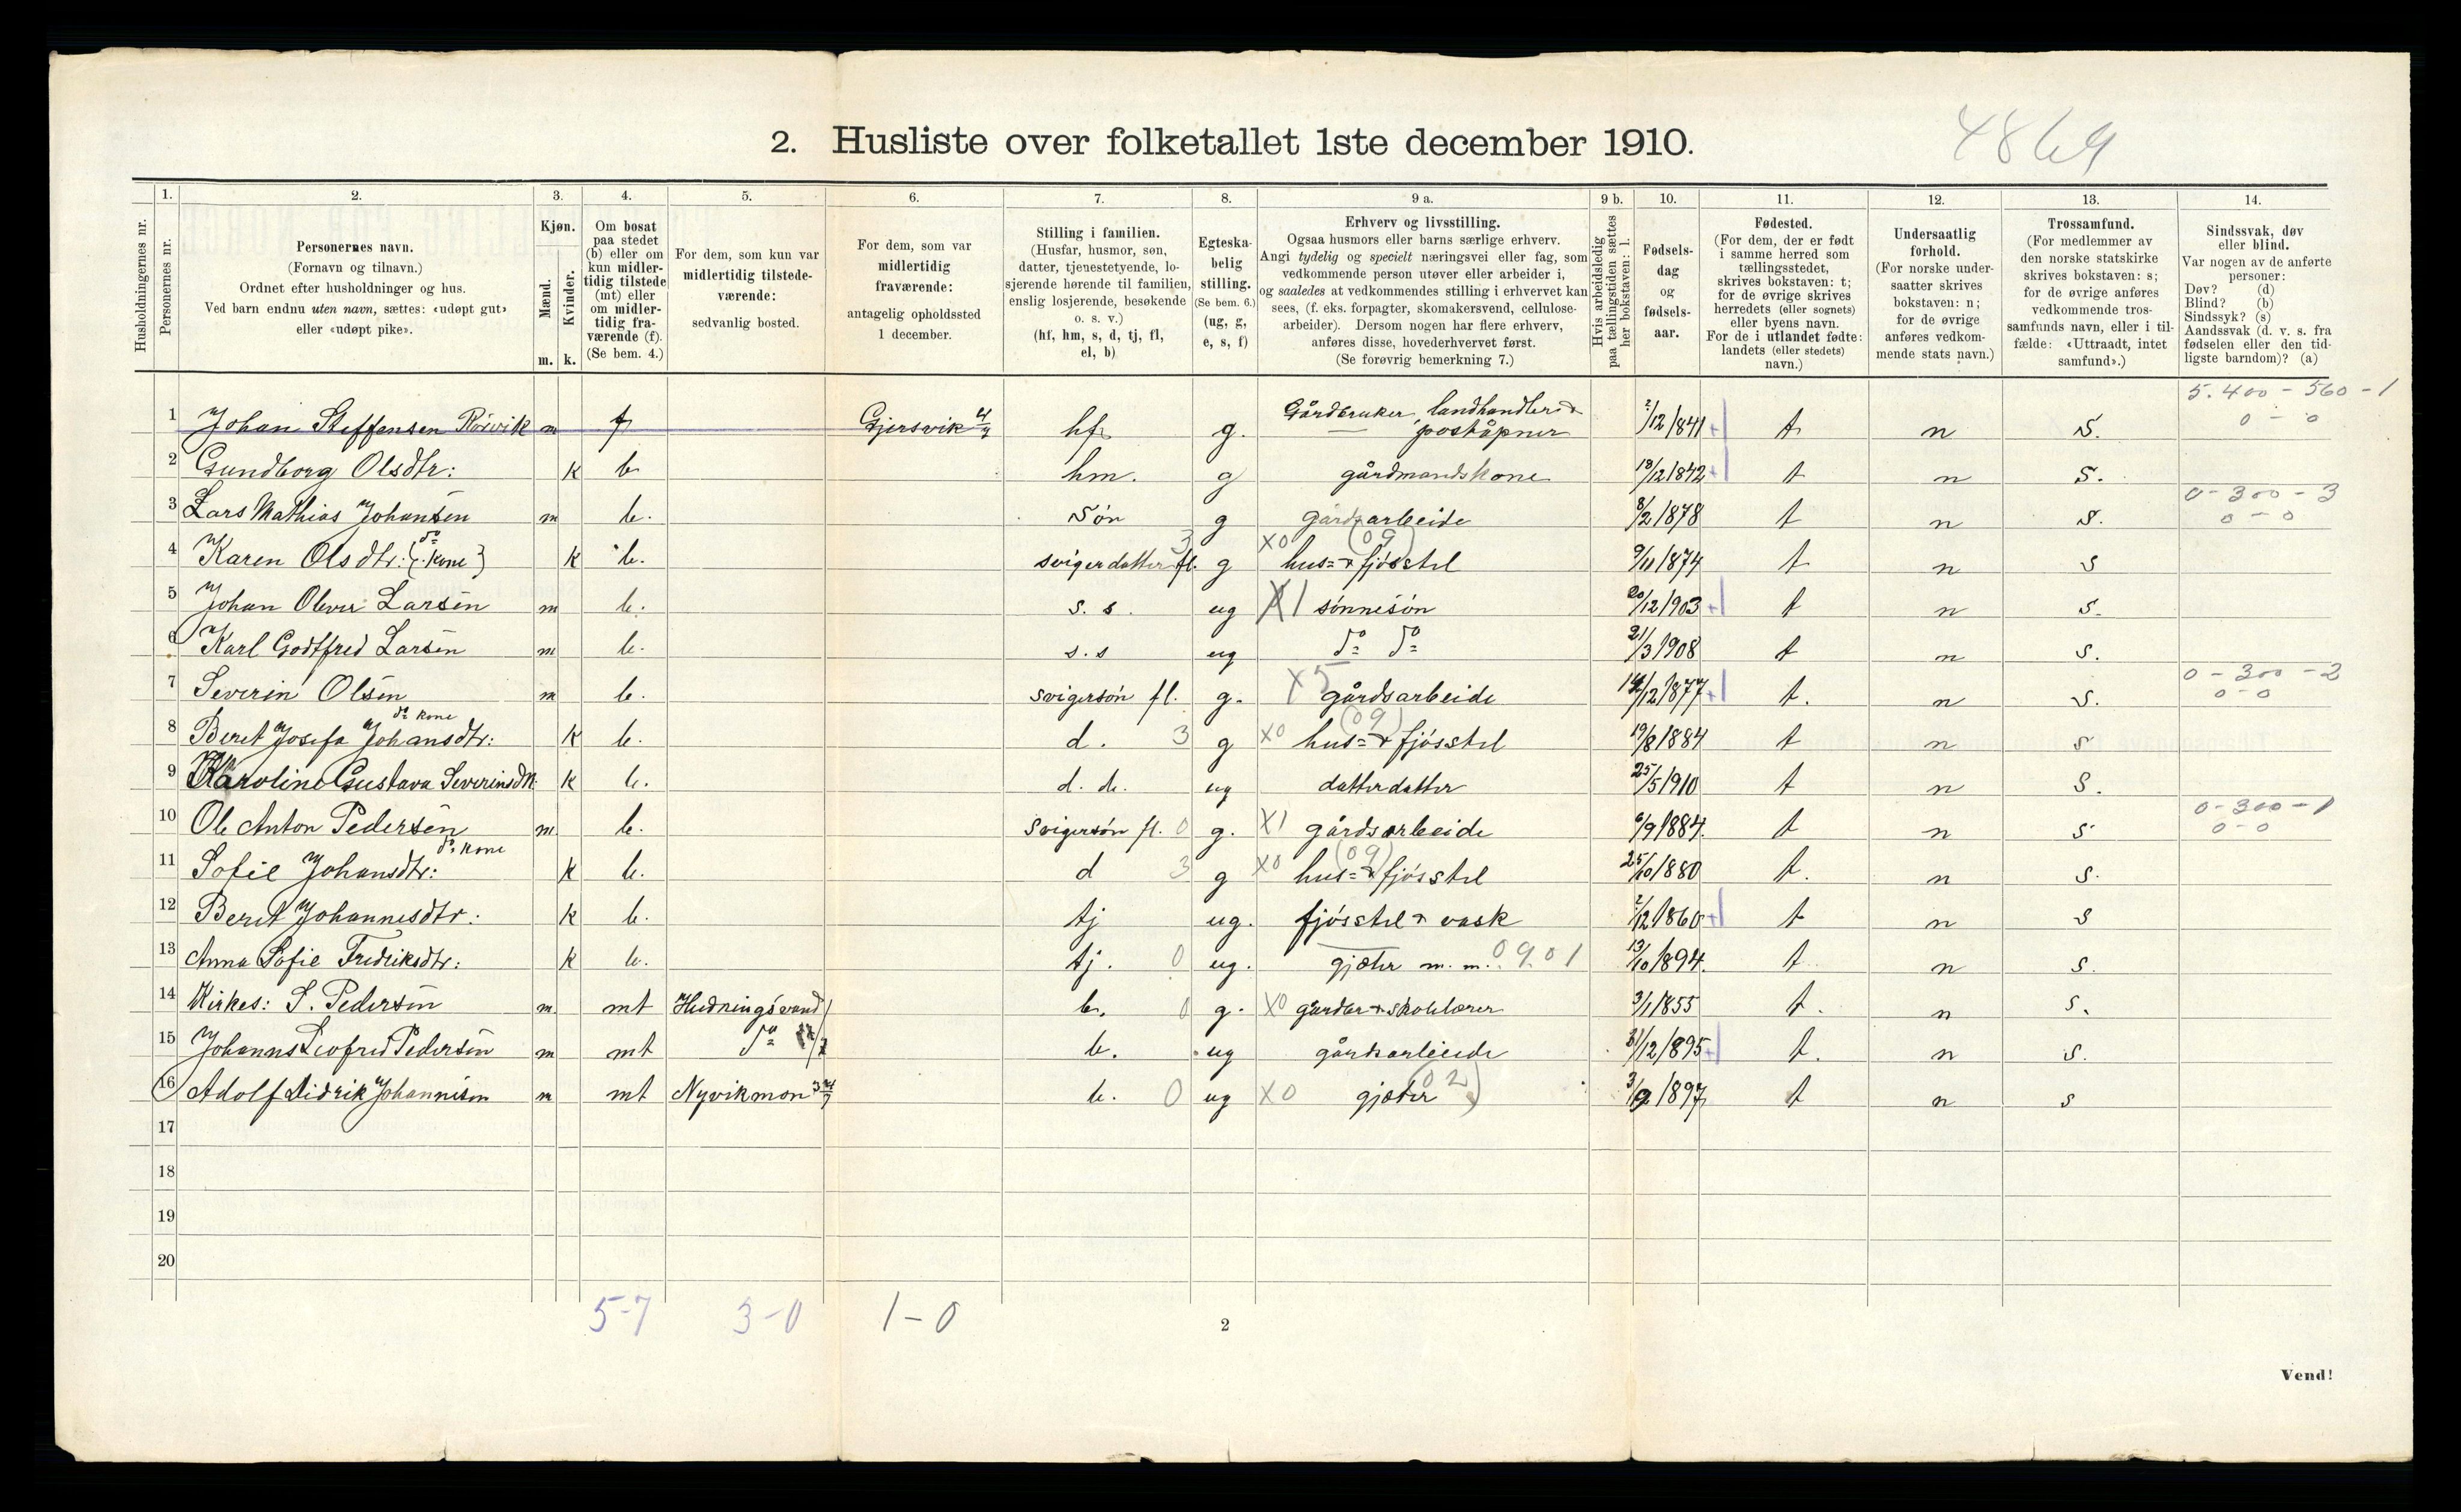 4869
2. Husliste over folketallet 1ste december 1910.
Husholdningernes nr.
1. Personernes nr.
2. Personernes navn.
(Fornavn og tilnavn.)
Ordnet efter husholdninger og hus.
Ved barn endnu uten navn, sættes: «udøpt gut»
eller «udøpt pike».
3. Kjøn.
Mænd. m.
Kvinder. k.
4. Om bosat
paa stedet
(b) eller om
kun midler-
tidig tilstede
(mt) eller
om midler-
tidig fra-
værende (f).
(Se bem. 4.)
5. For dem, som kun var
midlertidig tilstede-
værende:
sedvanlig bosted.
6. For dem, som var
midlertidig
fraværende:
antagelig opholdssted
1 december.
7. Stilling i familien.
(Husfar, husmor, søn,
datter, tjenestetyende, lo-
sjerende hørende til familien,
enslig losjerende, besøkende
o. s. v.)
(hf, hm, s, d, tj, fl,
el, b)
8. Egteska-
belig
stilling.
(Se bem. 6.)
(ug, g,
e, s, f)
9 a. Erhverv og livsstilling.
Ogsaa husmors eller barns særlige erhverv.
Angi tydelig og specielt næringsvei eller fag, som
vedkommende person utøver eller arbeider i,
og saaledes at vedkommendes stilling i erhvervet kan
sees, (f. eks. forpagter, skomakersvend, cellulose-
arbeider). Dersom nogen har flere erhverv,
anføres disse, hovederhvervet først.
(Se forøvrig bemerkning 7.)
9 b. Hvis arbeidsledig
paa tællingstiden sættes
her bokstaven: l.
10. Fødsels-
dag
og
fødsels-
aar.
11. Fødested.
(For dem, der er født
i samme herred som
tællingsstedet,
skrives bokstaven: t;
for de øvrige skrives
herredets (eller sognets)
eller byens navn.
For de i utlandet fødte:
landets (eller stedets)
navn.)
12. Undersaatlig
forhold.
(For norske under-
saatter skrives
bokstaven: n;
for de øvrige
anføres vedkom-
mende stats navn.)
13. Trossamfund.
(For medlemmer av
den norske statskirke
skrives bokstaven: s;
for de øvrige anføres
vedkommende tros-
samfunds navn, eller i til-
fælde: «Uttraadt, intet
samfund».)
14. Sindssvak, døv
eller blind.
Var nogen av de anførte
personer:
Døv? (d)
Blind? (b)
Sindssyk? (s)
Aandssvak (d. v. s. fra
fødselen eller den tid-
ligste barndom)? (a)
5.400 - 560 - 1
1 Johan Steffensen Rörvik m f Gjersvik 4/7 hf g. Gårdbruker, landhandler & poståpner 2/12/841 + t n S. 0 - 0
2 Gundborg Olsdtr: k b hm. g gårdmandskone 18/12/842 + t n S.
3 Lars Mathias Johansen m b. Sön g gårdsarbeide 8/2/1878 t n S. 0-300-3 0-0
4 Karen Olsdtr: {do: Kone} k b. svigerdatter fl. 3 g X0 hus= & fjösstel (09) 9/11/1874 t n S
5 Johan Oluver Larsen m b. s. s. ug X1 sönnesön 20/12/903 + t n S.
6 Karl Godtfred Larsen m b. s. s ug do do 21/3/1908 t n S.
7 Severin Olsen m b. svigersön fl. g. X5 gårdsarbeide 14/12/1877 + t. n S. 0-300-2 0-0
8 Beret Josefa Johansdtr: do Kone k b. d. 3 g X0 hus= & fjösstel (09) 19/8/1884 t n S
9 Karoline Gustava Severinsdtr. k b. d. d. ug datterdatter 25/5/1910 t n S.
10 Ole Anton Pedersen m. b. Svigersön fl. 0 g. X1 gårdsarbeide 6/9/1884. t n S 0-300-1 0-0
11 Sofie Johansdtr: do: Kone k b. d 3 g X0 hus= & fjösstel (09) 25/10/1880 t. n S.
12 Beret Johannesdtr: k b. tj ug. fjösstel & vask 2/12/1860 + t n S
13 Anna Sofie Fredriksdtr: k b. tj. 0 ug. gjæter m. m. 0901 13/10/1894. t n S.
14 Kirkes: S. Pedersen m. mt Hudningsvand b. 0 g. X0 gårdbr & skolelærer 3/1/1855 t. n S.
15 Johannes Leofred Pedersen m mt do b. ug gårdsarbeide 31/12/895 + t. n S.
16 Adolf Didrik Johannesen m mt Nyvikmon b. 0 ug X0 gjæter (02) 3/9/1897 t n S
17
18
19
20
5-7 3-0 1-0
2
Vend!